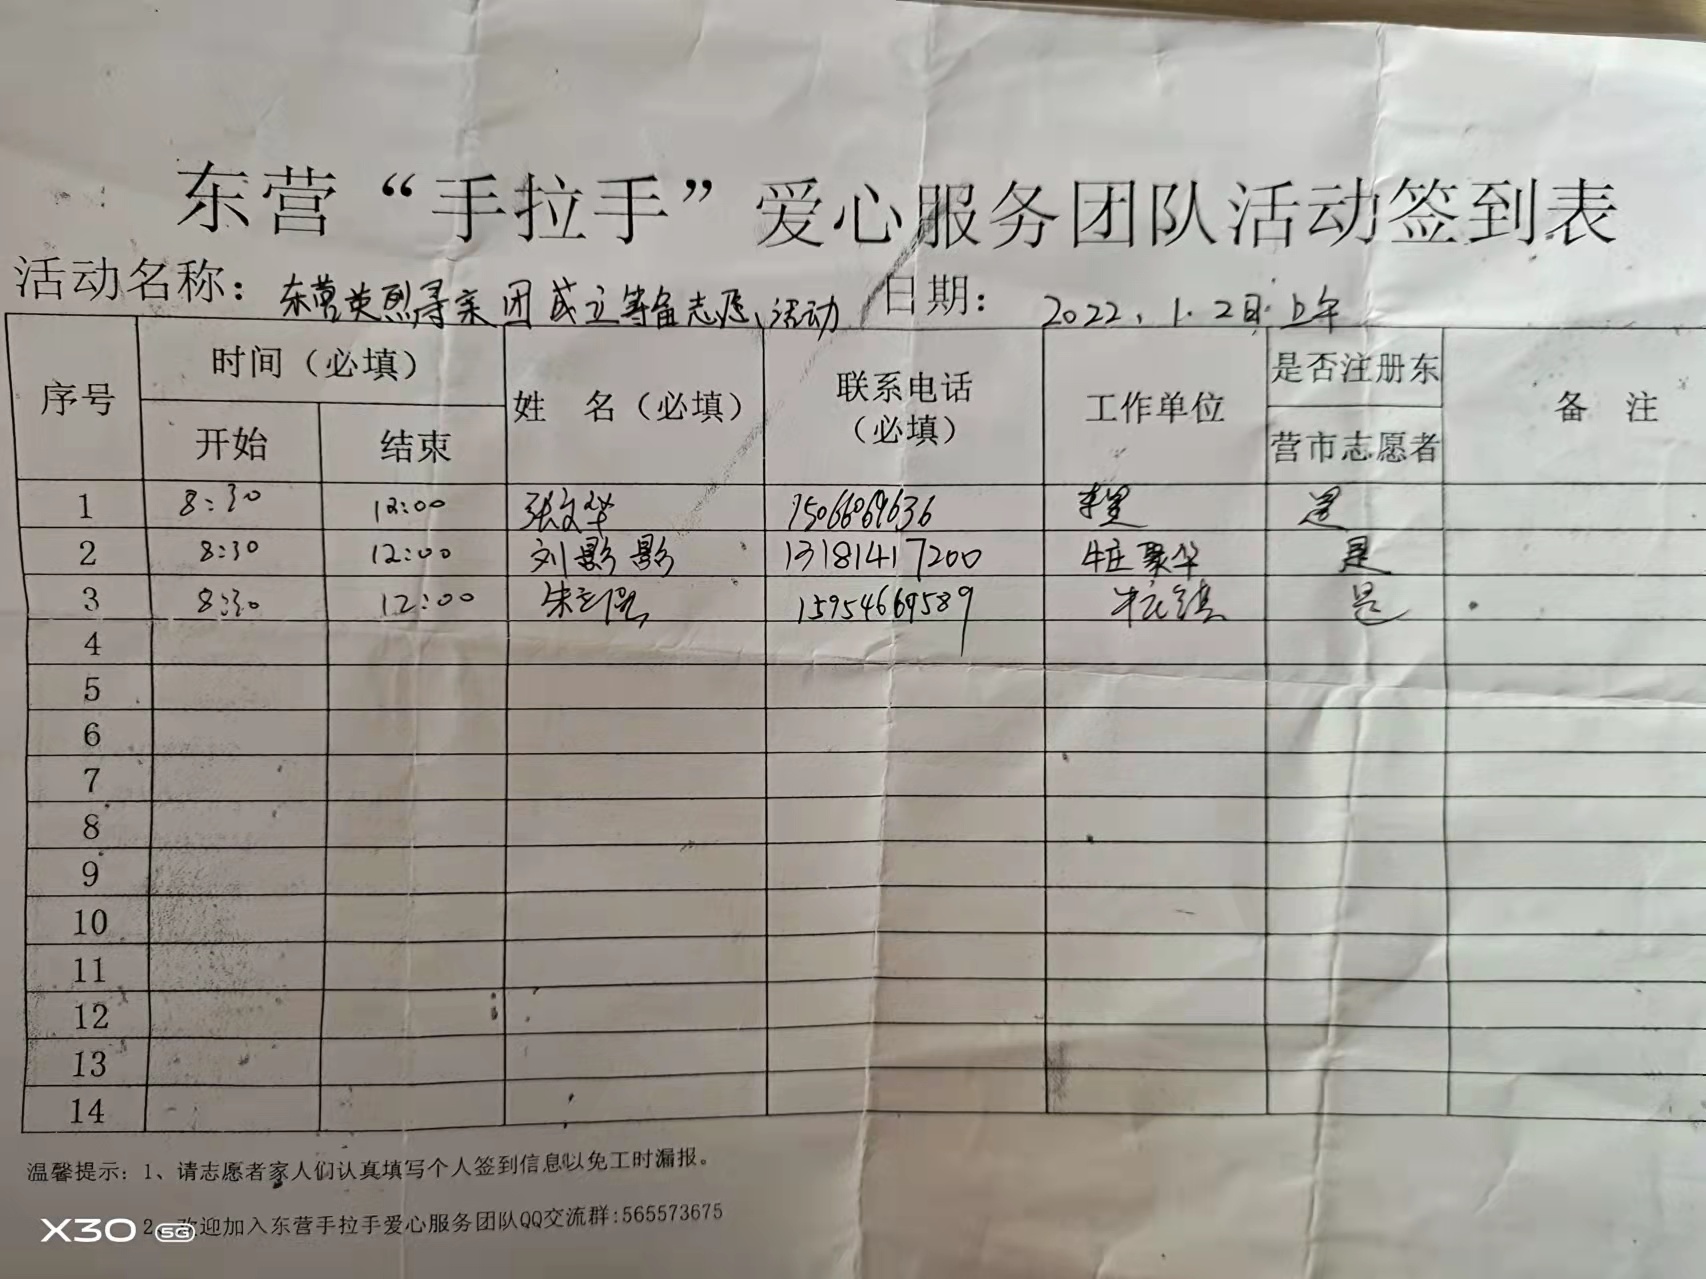 东营“手拉手”爱心服务团队活动签到表
活动名称：东营英烈寻亲团成立筹备志愿活动 日期：2022.1.2日上午
序号 时间（必填） 姓 名（必填） 联系电话（必填） 工作单位 是否注册东营市志愿者 备 注
开始 结束
1 8:30 12:00 张文华 15066069636 是
2 8:30 12:00 刘影影 13181417200 牛庄聚华 是
3 8:30 12:00 朱 15954669589 牛庄镇 是
4
5
6
7
8
9
10
11
12
13
14
温馨提示：1、请志愿者家人们认真填写个人签到信息以免工时漏报。
2、欢迎加入东营手拉手爱心服务团队QQ交流群:565573675
X30 5G